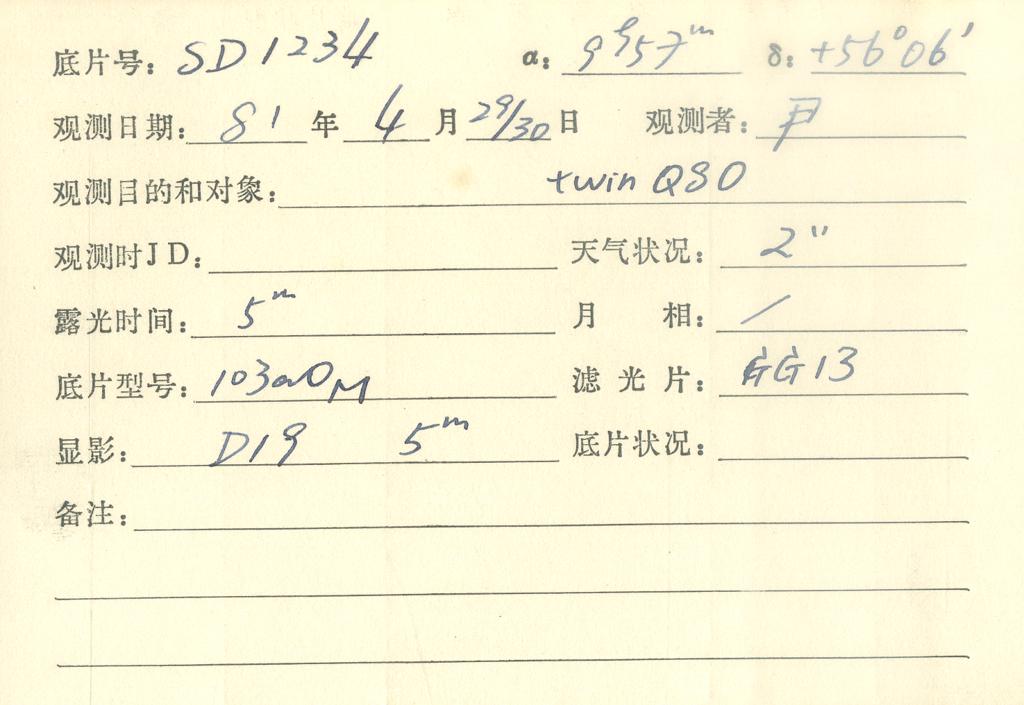 底片号: SD1234 α: 9h57m δ: +56°06′
观测日期: 81 年 4 月 29/30 日 观测者: 尹
观测目的和对象: twin QSO
观测时JD: 天气状况: 2″
露光时间: 5m 月 相: /
底片型号: 103aO 滤光片: GG13
显影: D19 5m 底片状况:
备注: